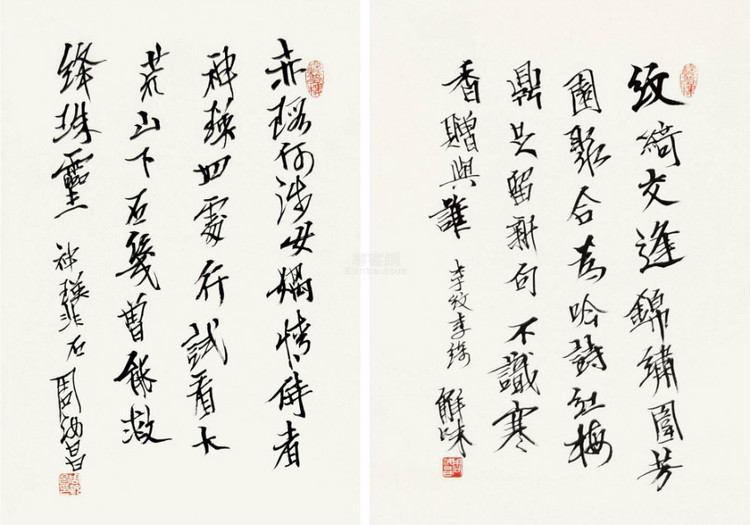 紋綺交逢錦繡圍芳
園聚合為吟詩紅梅
鼎足留新句不識寒
香贈與誰 李紋李綺 解味
赤瑕何涉女媧情侍者
神瑛四處行試看大
荒山下石幾曾能溉
絳珠靈 神瑛非石 周汝昌